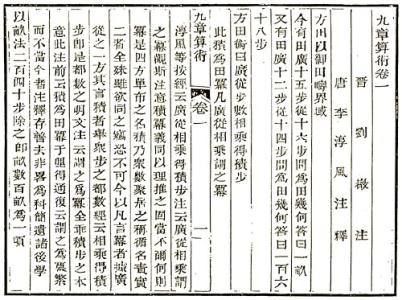 九章算術卷一
晉劉徽注
唐李淳風注釋
方田以御田疇界域
今有田廣十五步從十六步問爲田幾何荅曰一畝
又有田廣十二步從十四步問爲田幾何荅曰一百六
十八步
方田術曰廣從步數相乘得積步
此積爲田冪凡廣從相乘謂之冪
九章算術 卷一
淳風等按經云廣從相乘得積步注云廣從相乘謂
之冪觀斯注意積冪義同以理推之固當不爾何則
冪是四方單布之名積乃衆數聚居之稱循名責實
二者全殊雖欲同之竊恐不可今以凡言冪者據廣
從之一方其言積者舉衆步之都數經云相乘得積
步即是都數之明文注云謂之爲冪全乖積步之本
意此注前云積爲田冪于理得通復云謂之爲冪繁
而不當今者注釋存善去非畧爲科簡遺諸後學
以畝法二百四十步除之即畝數百畝爲一頃